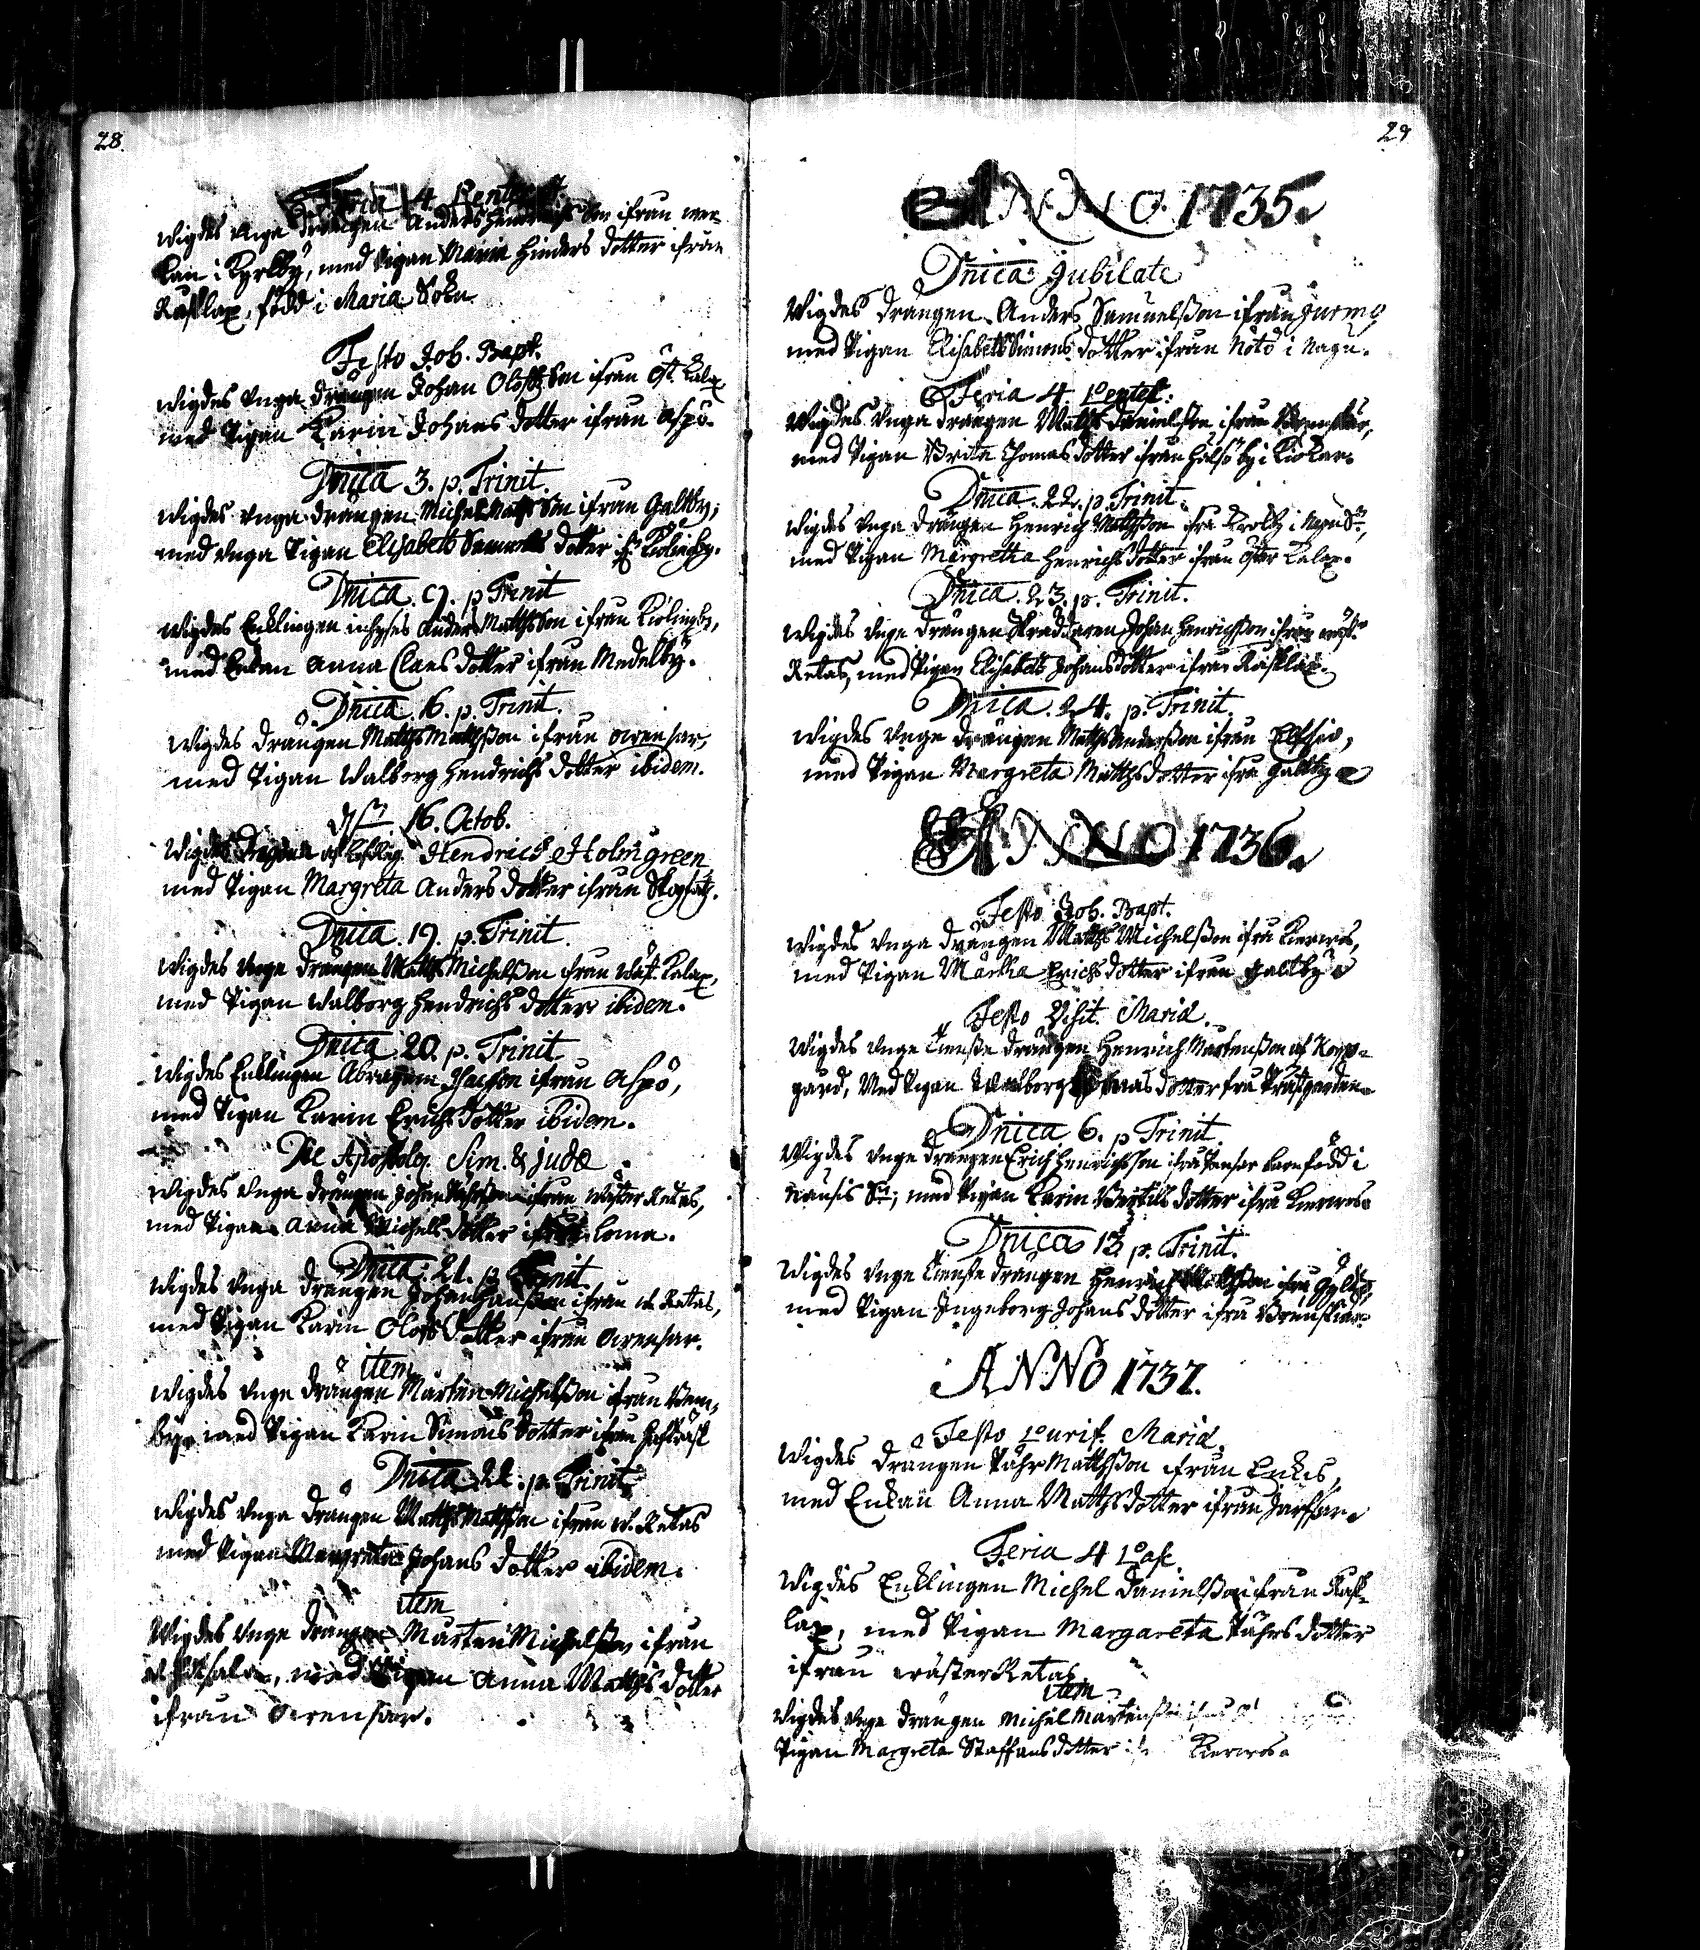 28.
Feria 4. Pentec:
Wigdes Unga drängen Anders Hendrichs Son ifrån
i Kyrkby, med Pigan Maria Hinders dotter ifrån
Rafslax, född i Maria Sokn.
Festo Joh. Bapt.
Wigdes Unga drängen Johan Olofs Son ifrån Öst. Kalax
med Pigan Karin Johans dotter ifrån Aspö.
Dnica 3. p. Trinit.
Wigdes Unga drängen Michel Matts Son ifrån Galtby,
med Unga Pigan Elisabeth dotter
Dnica. 9. p Trinit
Wigdes Encklingen Anders Matths Son ifrån
med Enkan Anna Claes dotter ifrån Medelby.
Dnica. 16. p. Trinit.
Wigdes drängen Matths Mathsson ifrån Avensar,
med Pigan Walborg Hendrichs dotter ibidem.
16. Octob.
Wigdes Hendrich Holmgreen
med Pigan Margreta Anders dotter ifrån
Dnica. 19. p. Trinit.
Wigdes Unge drängen Matths Michelsson ifrån Wäst. Kalax,
med Pigan Walborg Hendrichs dotter ibidem.
Dnica 20. p. Trinit
Wigdes Enklingen Abraham ifrån Aspö,
med Pigan Karin Erichs dotter ibidem.
Die Apostolor. Sim. & Judæ
Wigdes Unga drängen Johan ifrån Wäster Retas,
med Pigan Anna Michels dotter ifrån Loma.
Dnica. 21. p. Trinit.
Wigdes Unga drängen Johan ifrån W. Retas,
med Pigan Karin Olofs dotter ifrån Avensar.
item
Wigdes Unge drängen Mårten Michelsson ifrån
med Pigan Karin Simons dotter ifrån
Dnica 22. p. Trinit.
Wigdes Unga drängen Matths Mathsson ifrån W. Retas
med Pigan Margreta Johans dotter ibidem.
item
Wigdes Unge drängen Mårten Michelsson ifrån
med Pigan Anna Matths dotter
ifrån Avensar.
29
ANNO. 1735.
Dnica Jubilate
Wigdes drängen Anders Samuelsson ifrån Jurmo,
med Pigan Elisabeth Simons dotter ifrån Nötö i Nagu.
Feria 4. Pentec:
Wigdes Unga drängen Matths Danielsson ifrån Brenskär,
med Pigan Brita Thomas dotter ifrån Hälsö by i Kiökar.
Dnica. 22. p. Trinit.
Wigdes Unga drängen Henrich Mathsson ifrå
med Pigan Margretha Henrichs dotter ifrån Öster Kalax.
Dnica. 23. p. Trinit.
Wigdes Unge drängen Skräddaren Johan Henrichsson ifrån
Retas, med Pigan Elisabeth Johans dotter ifrån Rafslax.
Dnica. 24. p. Trinit
Wigdes Unge drängen Matths Andersson ifrån Elfsiö,
med Pigan Margreta Matths dotter ifrå Galtby
ANNO 1736.
Festo Joh. Bapt.
Wigdes Unga drängen Matths Michelsson ifrå Kierwos,
med Pigan Martha Erichs dotter ifrån Galtby
Festo Visit. Mariæ.
Wigdes Unge Tienste drängen Henrich Mårtensson af Korp-
gård, Med Pigan Walborg dotter frå Prästgården
Dnica 6. p Trinit.
Wigdes Unge drängen Erich Henrichsson ifrå född i
Nausis Sn; med Pigan Karin Bertils dotter ifrå Kierwos.
Dnica 13 p. Trinit.
Wigdes Unge Tienste drängen Henrich ifrå Gyltö,
med Pigan Ingeborg Johans dotter ifrå Brenskiär.
ANNO 1737.
Festo Purif. Mariæ.
Wigdes drängen Påhr Matthsson ifrån Enkis,
med Enkan Anna Matths dotter ifrån
Feria 4 Pasc.
Wigdes Enklingen Michel Danielsson ifrån Rafs-
lax, med Pigan Margareta Påhrs dotter
ifrån wäster Retas.
item
Wigdes Unge drängen Michel Mårtensson
Pigan Margreta Staffans dotter Kierwos.